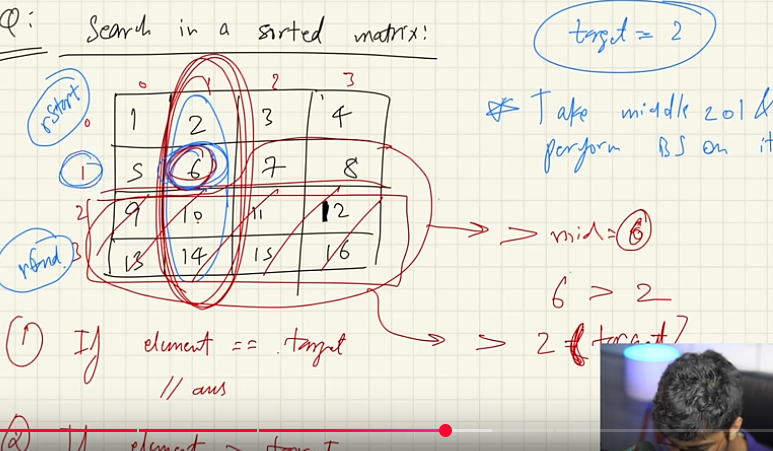 Q: Search in a sorted matrix:
target = 2
0 1 2 3
rstart
0 1 2 3 4
1 5 6 7 8
2 9 10 11 12
3 13 14 15 16
rEnd
* Take middle col &
perform BS on it
> mid = 6
6 > 2
> 2 (target)
① If element == target
// ans
② If element > target